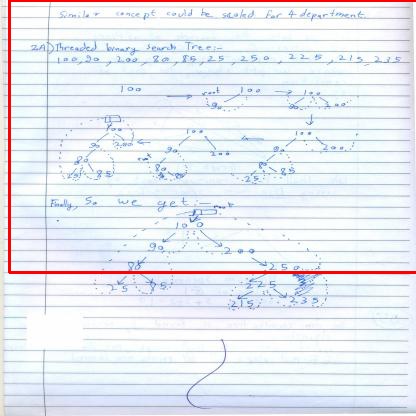 Similar concept could be scaled for 4 department.
2A) Threaded binary search Tree:-
100, 90, 200, 80, 85, 25, 250, 225, 215, 235
100 root 100 100
90 90 200
100 100 100
90 200 90 200 90 200
80 80 80
25 85 85 25 85
Finally, So we get:- root
100
90 200
80 250
25 85 225
215 235